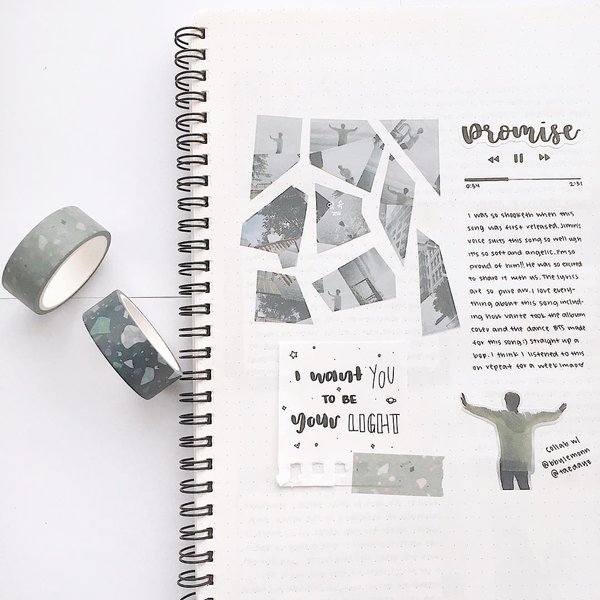 promise
0:54 2:31
I was so shooketh when this
song was first released. Jimin's
voice suits this song so well ugh
it's so soft and angelic. I'm so
proud of him!! He was so excited
to share it with us. The lyrics
are so pure aw. I love every-
thing about this song includ-
ing how vante took the album
cover and the dance BTS made
for this song :) straight up a
bop. I think I listened to this
on repeat for a week lmaoo
I want YOU
TO BE
your LIGHT
collab w/
@bbylemonn